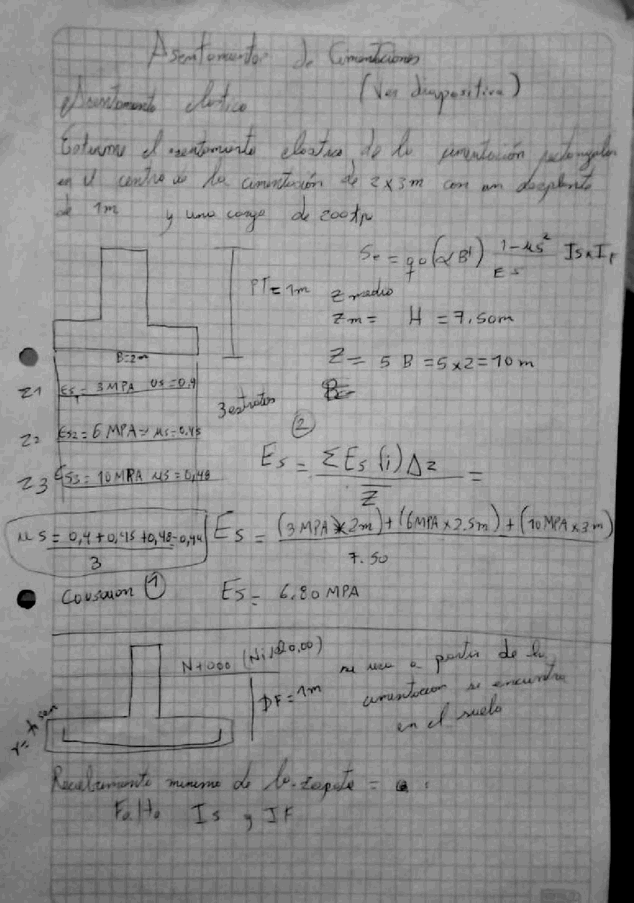 Asentamientos de Cimentaciones
(Ver diapositiva)
Asentamiento elastico
Estime el asentamiento elastico de la cimentación rectangular
en el centro de la cimentación de 2x3m con un desplante
de 1m y una carga de 200
Se = qo (αB') 1-μs² / Es Is x If
PT = 1m
Z medio
Zm = H = 7.50m
B=2m
Z = 5 B = 5x2 = 10m
Z1 Es1 = 3 MPA us = 0.4
3 estratos
Z2 Es2 = 6 MPA = μs = 0.45
②
Es = Σ Es (i) Δz / Z =
Z3 Es3 = 10 MPA μs = 0,48
μs = 0,4 + 0,45 + 0,48 = 0,44 / 3
Es = (3 MPA x 2m) + (6MPA x 2.5m) + (10 MPA x 3m) / 7.50
①
Es = 6.80 MPA
N+000
DF = 1m
a partir de la
cimentacion se encuentra
en el suelo
Recubrimiento minimo de la zapata =
Falta Is y IF